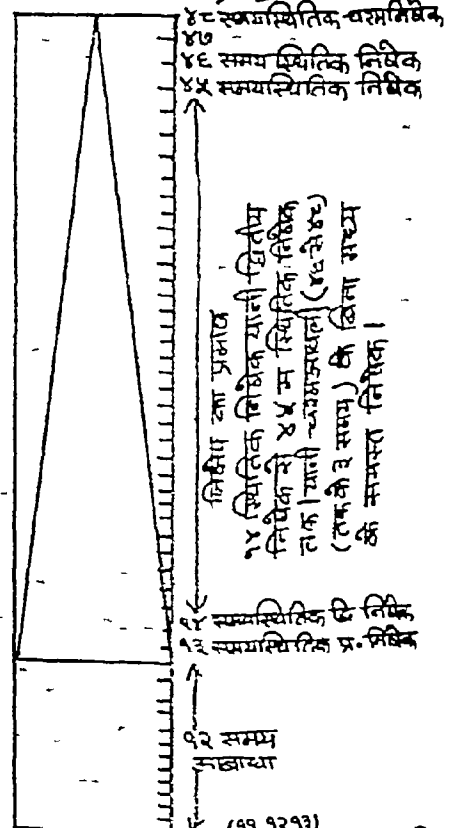 ४८ समयस्थितिक-चरमनिषेक
४७
४६ समय स्थितिक निषेक
४५ समयस्थितिक निषेक
निक्षेप का प्रमाण
१४ स्थितिक निषेक यानी द्वितीय
निषेक से ४५ म स्थितिक निषेक
तक। यानी चरमआवली (४६ से ४८
तक के ३ समय) के बिना मध्य
के समस्त निषेक।
१४ समयस्थितिक द्वि निषेक
१३ समयस्थितिक प्र. निषेक
१२ समय
आबाधा